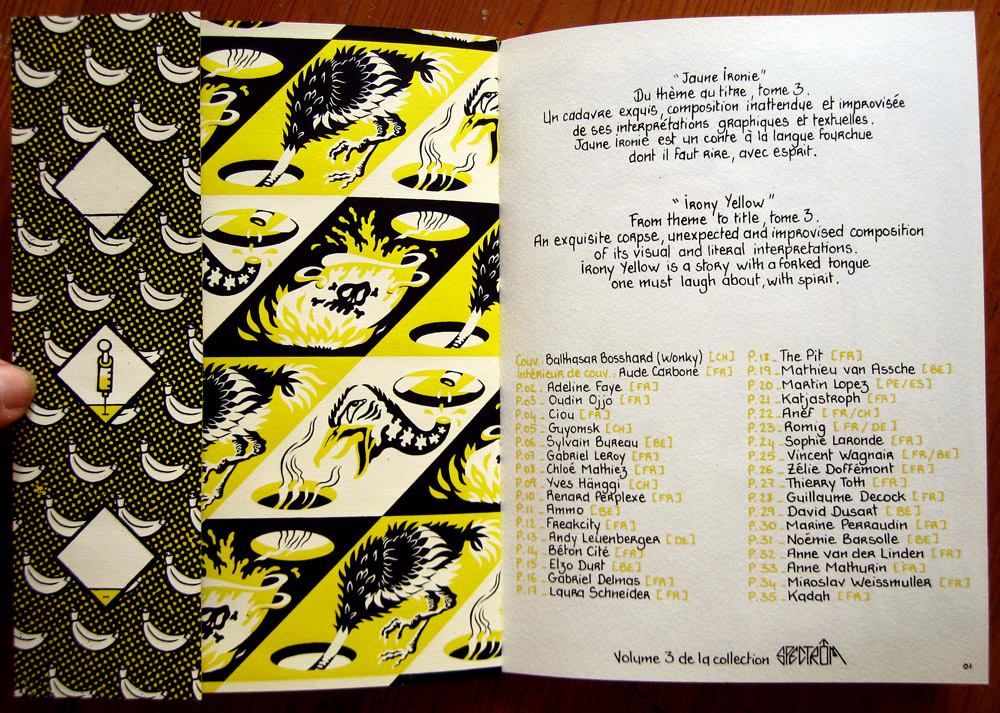 "Jaune Ironie"
Du thème au titre, tome 3.
Un cadavre exquis, composition inattendue et improvisée
de ses interprétations graphiques et textuelles.
Jaune Ironie est un conte à la langue fourchue
dont il faut rire, avec esprit.
"Irony Yellow"
From theme to title, tome 3.
An exquisite corpse, unexpected and improvised composition
of its visual and literal interpretations.
Irony Yellow is a story with a forked tongue
one must laugh about, with spirit.
Couv. Balthasar Bosshard (Wonky) [CH]
Intérieur de couv. Aude Carbone [FR]
P.02_ Adeline Faye [FR]
P.03_ Oudin Ojjo [FR]
P.04_ Ciou [FR]
P.05_ Guyomsk [CH]
P.06_ Sylvain Bureau [BE]
P.07_ Gabriel LeRoy [FR]
P.08_ Chloé Mathiez [FR]
P.09_ Yves Hänggi [CH]
P.10_ Renard Perplexe [FR]
P.11_ Ammo [BE]
P.12_ Freakcity [FR]
P.13_ Andy Leuenberger [DE]
P.14_ Béton Cité [FR]
P.15_ Elzo Durt [BE]
P.16_ Gabriel Delmas [FR]
P.17_ Laura Schneider [FR]
P.18_ The Pit [FR]
P.19_ Mathieu van Assche [BE]
P.20_ Martin Lopez [PE/ES]
P.21_ Katjastroph [FR]
P.22_ Anef [FR/CH]
P.23_ Romig [FR/DE]
P.24_ Sophie Laronde [FR]
P.25_ Vincent Wagnair [FR/BE]
P.26_ Zélie Doffémont [FR]
P.27_ Thierry Toth [FR]
P.28_ Guillaume Decock [FR]
P.29_ David Dusart [BE]
P.30_ Marine Perraudin [FR]
P.31_ Noémie Barsolle [BE]
P.32_ Anne van der Linden [FR]
P.33_ Anne Mathurin [FR]
P.34_ Miroslav Weissmuller [FR]
P.35_ Kadah [FR]
Volume 3 de la collection SPECTRÔM
01